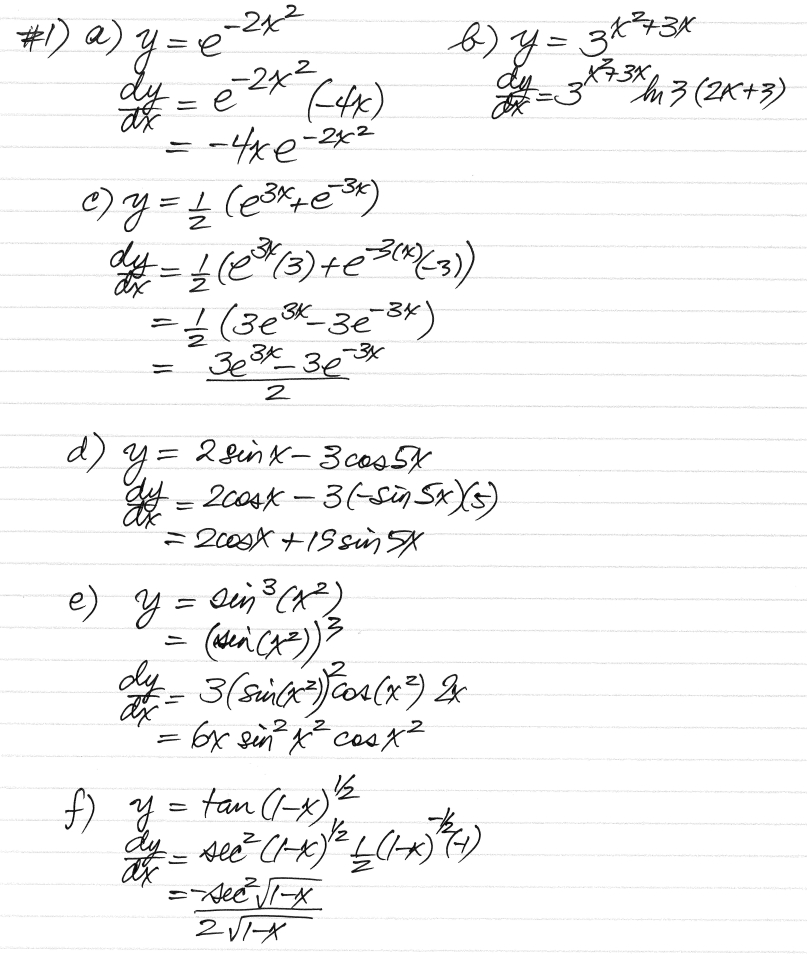 #1) a) y = e^{-2x^2}
dy/dx = e^{-2x^2} (-4x)
= -4xe^{-2x^2}
b) y = 3^{x^2+3x}
dy/dx = 3^{x^2+3x} ln 3 (2x+3)
c) y = 1/2 (e^{3x}+e^{-3x})
dy/dx = 1/2 (e^{3x}(3) + e^{-3(x)}(-3))
= 1/2 (3e^{3x} - 3e^{-3x})
= (3e^{3x} - 3e^{-3x})/2
d) y = 2 sin x - 3 cos 5x
dy/dx = 2cosx - 3(-sin 5x)(5)
= 2cosx + 15 sin 5x
e) y = sin^3 (x^2)
= (sin(x^2))^3
dy/dx = 3(sin(x^2))^2 cos(x^2) 2x
= 6x sin^2 x^2 cos x^2
f) y = tan (1-x)^{1/2}
dy/dx = sec^2 (1-x)^{1/2} 1/2 (1-x)^{-1/2} (-1)
= -sec^2 √(1-x) / 2√(1-x)